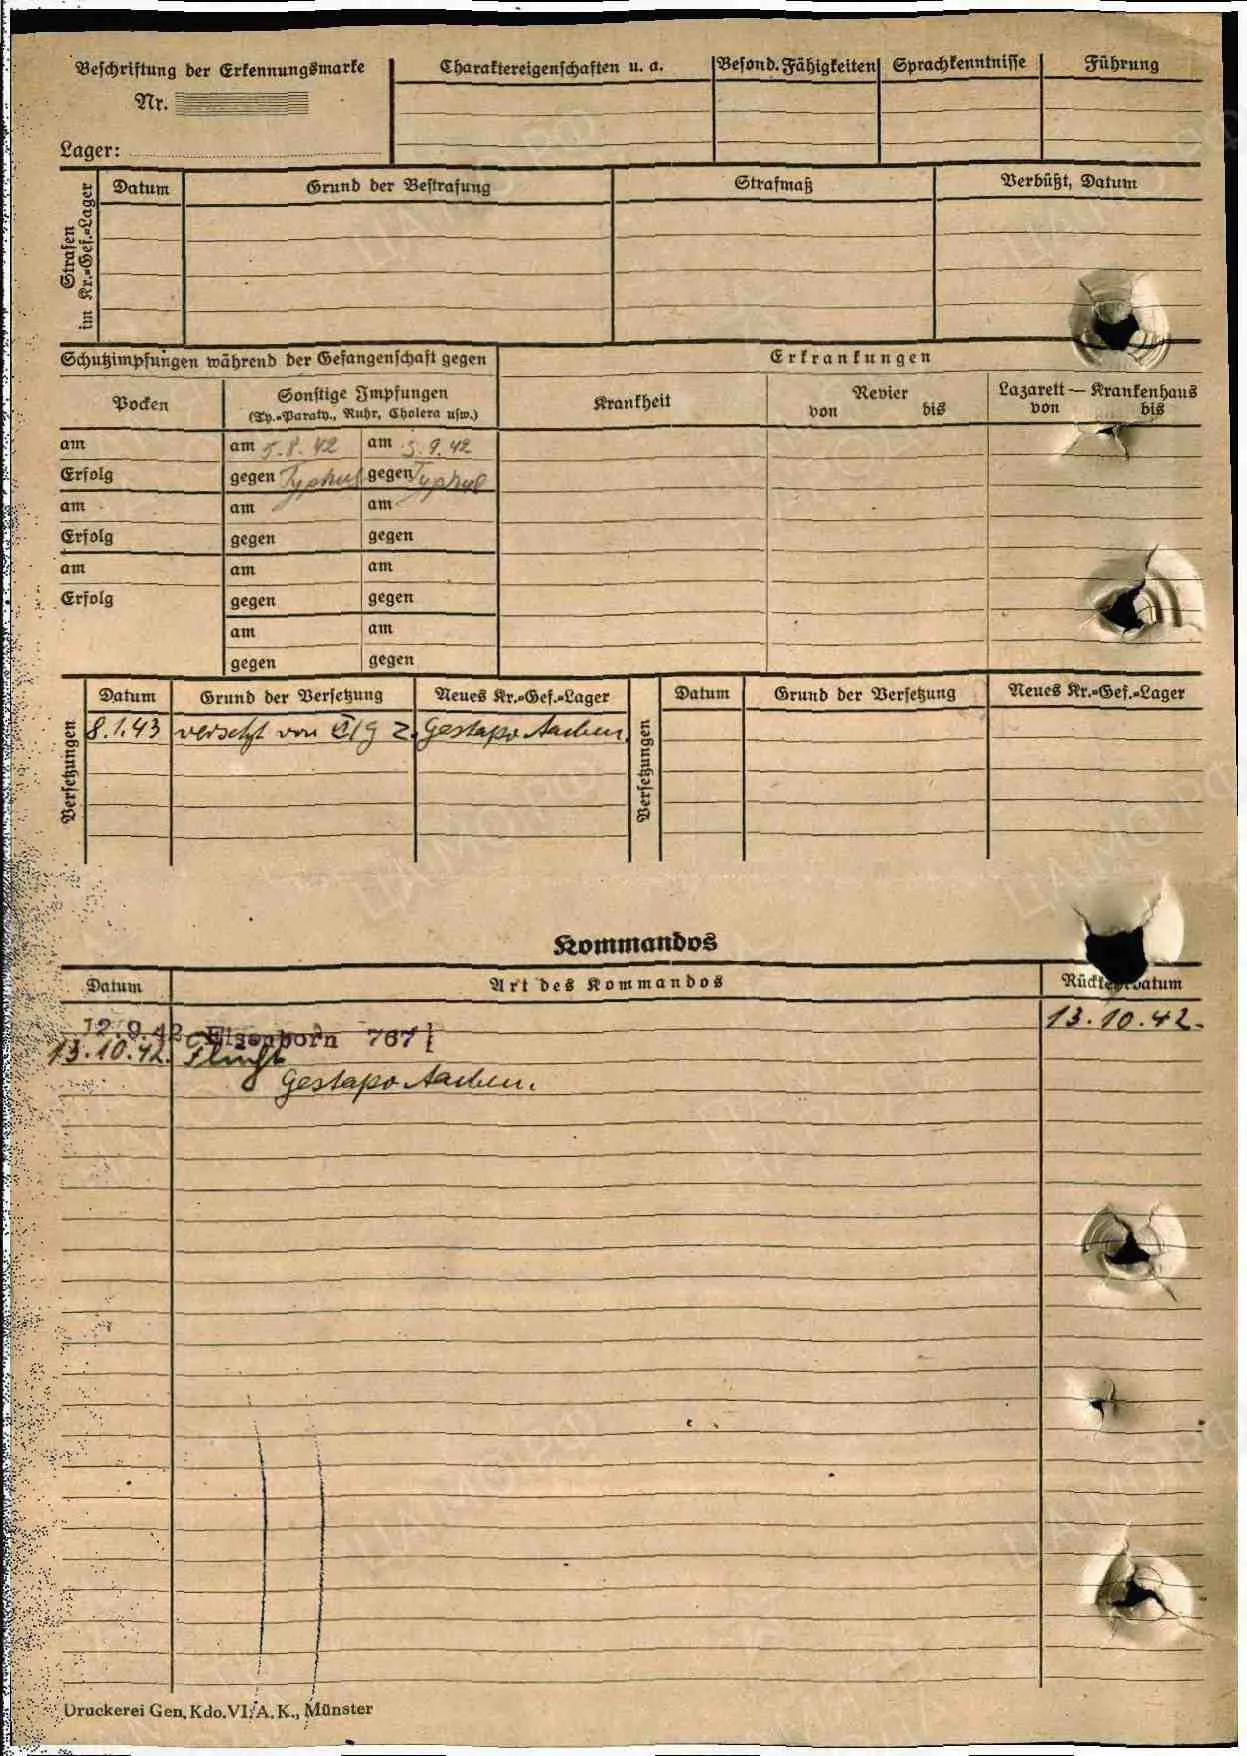 Beschriftung der Erkennungsmarke
Nr.
Lager:
Charaktereigenschaften u. a.
Besond. Fähigkeiten
Sprachkenntnisse
Führung
Strafen im Kr.-Gef.-Lager
Datum
Grund der Bestrafung
Strafmaß
Verbüßt, Datum
Schutzimpfungen während der Gefangenschaft gegen
Erkrankungen
Pocken
Sonstige Impfungen
(Ty.-Paraty., Ruhr, Cholera usw.)
Krankheit
Revier
von bis
Lazarett — Krankenhaus
von bis
am am 5.8.42 am 5.9.42
Erfolg gegen Typhus gegen Typhus
am am am
Erfolg gegen gegen
am am am
Erfolg gegen gegen
am am
gegen gegen
Versetzungen
Datum Grund der Versetzung Neues Kr.-Gef.-Lager
8.1.43 versetzt von VI/G z. Gestapo Aachen
Versetzungen
Datum Grund der Versetzung Neues Kr.-Gef.-Lager
Kommandos
Datum Art des Kommandos Rückkehrdatum
12.9.42 Elsenborn 767 13.10.42.
13.10.42. Flucht
Gestapo Aachen.
Druckerei Gen. Kdo. VI. A. K., Münster
ЦАМО.РФ
ЦАМО.РФ
ЦАМО.РФ
ЦАМО.РФ
ЦАМО.РФ
ЦАМО.РФ